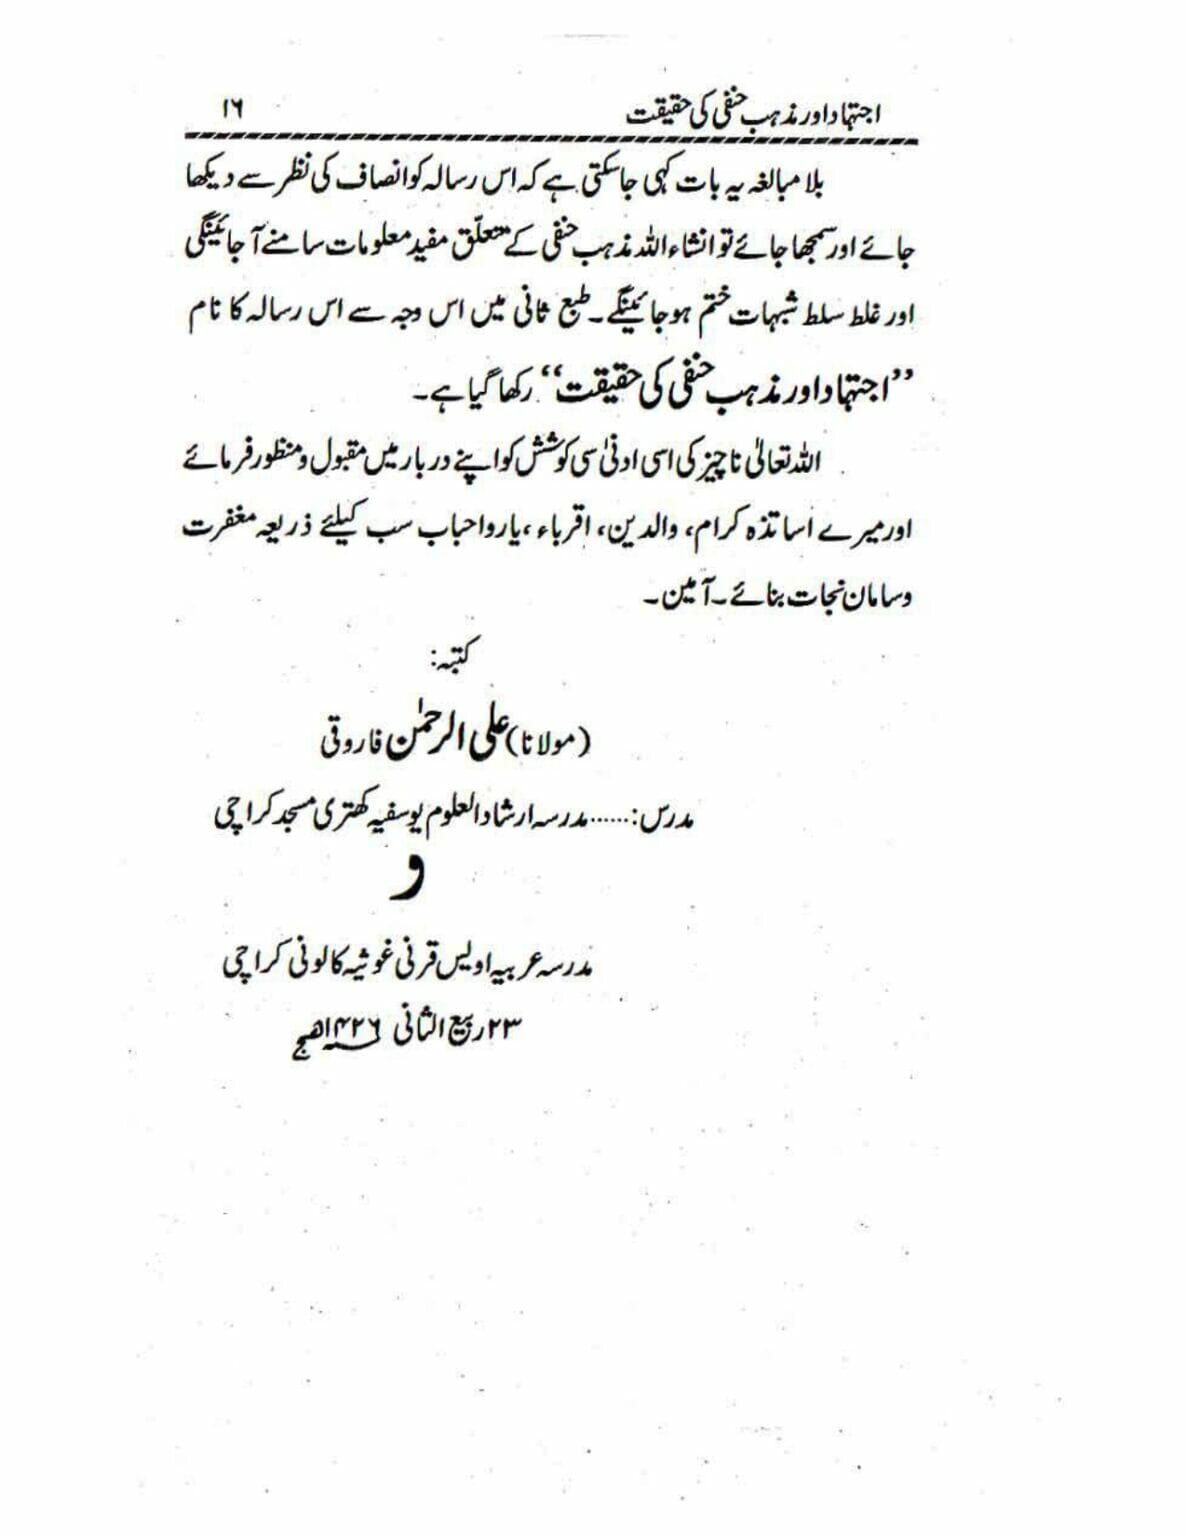 اجتہاد اور مذہب حنفی کی حقیقت ۱۶
بلا مبالغہ یہ بات کہی جاسکتی ہے کہ اس رسالہ کو انصاف کی نظر سے دیکھا
جائے اور سمجھا جائے تو انشاء اللہ مذہب حنفی کے متعلّق مفید معلومات سامنے آ جائینگی
اور غلط سلط شبہات ختم ہو جائینگے۔ طبع ثانی میں اس وجہ سے اس رسالہ کا نام
”اجتہاد اور مذہب حنفی کی حقیقت“ رکھا گیا ہے۔
اللہ تعالیٰ ناچیز کی اسی ادنیٰ سی کوشش کو اپنے دربار میں مقبول و منظور فرمائے
اور میرے اساتذہ کرام، والدین، اقرباء، یار و احباب سب کیلئے ذریعہ مغفرت
و سامان نجات بنائے۔ آمین۔
کتبہ:
(مولانا) علی الرحمٰن فاروقی
مدرس:......مدرسہ ارشاد العلوم یوسفیہ کھتری مسجد کراچی
و
مدرسہ عربیہ اویس قرنی غوثیہ کالونی کراچی
۲۳ ربیع الثانی ۱۴۲۶ھج